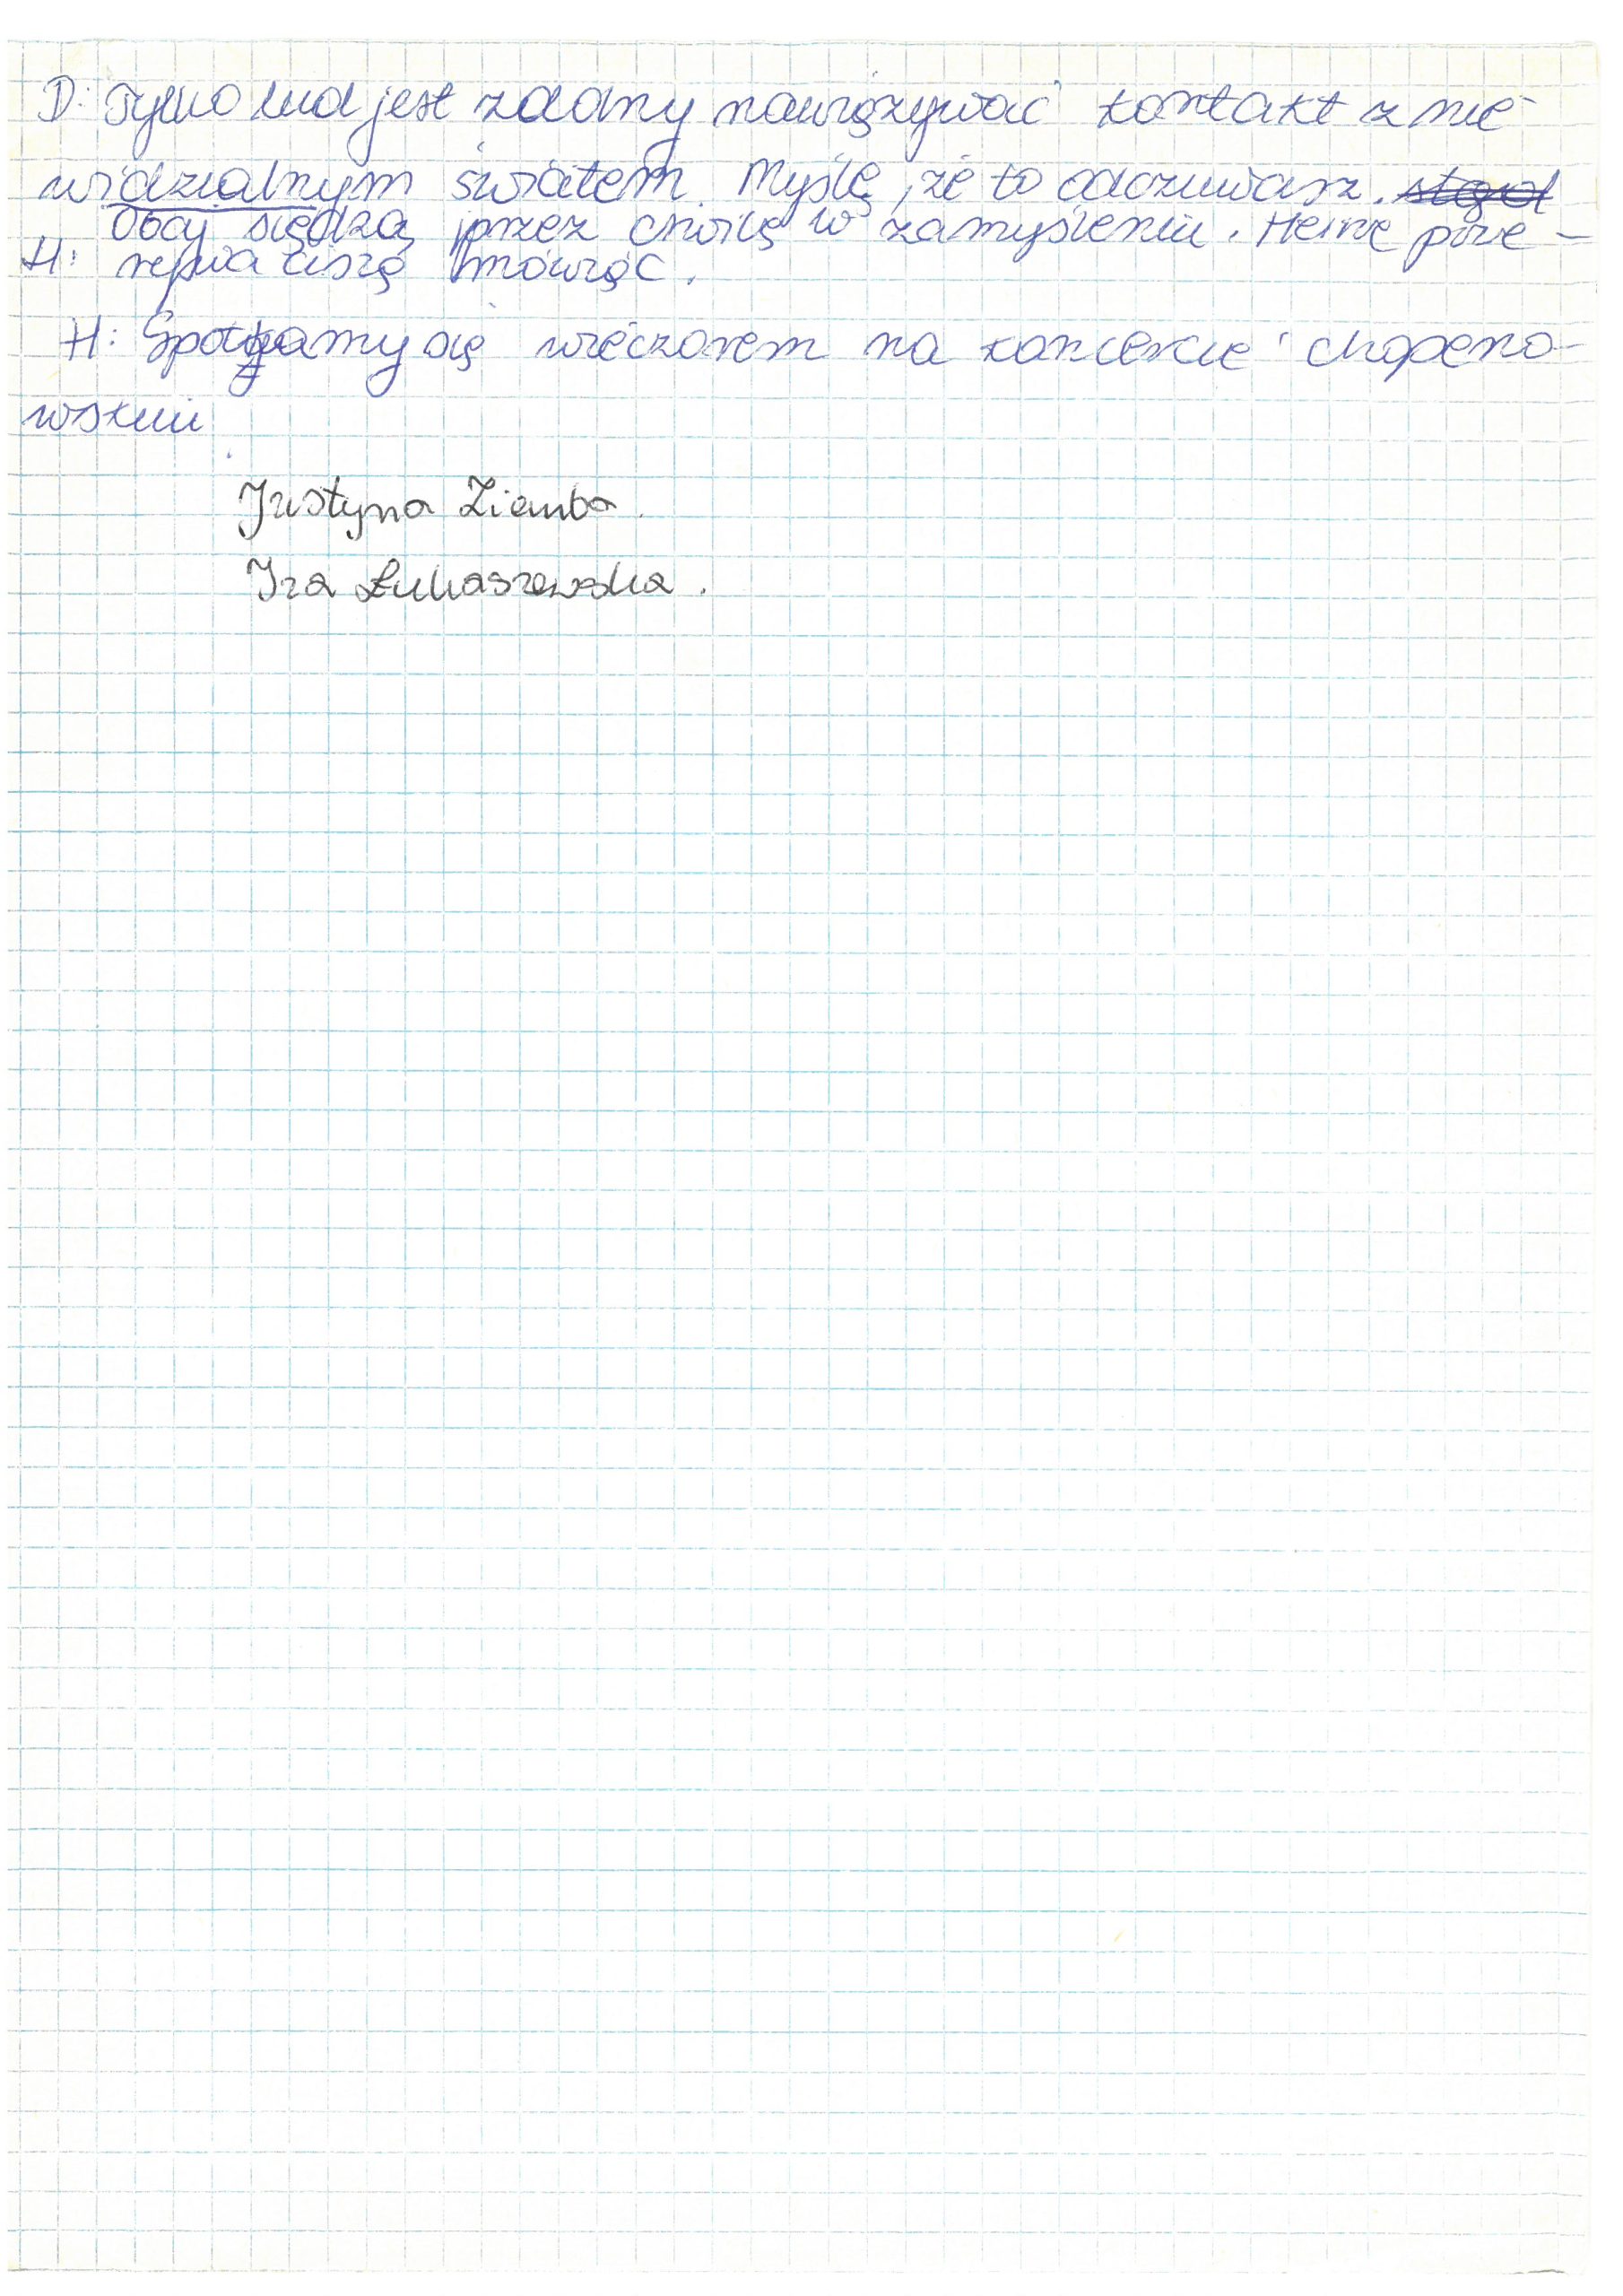 D: Tylko lud jest zdolny nawiązywać kontakt z nie-
widzialnym światem. Myślę, że to odczuwasz.
Obaj siędzą przez chwilę w zamyśleniu. Heine prze-
H: rejwa ciszę mówiąc.
H: Spotkamy się wieczorem na koncercie chopeno-
wskim
Justyna Ziemba.
Iza Łukaszewska.